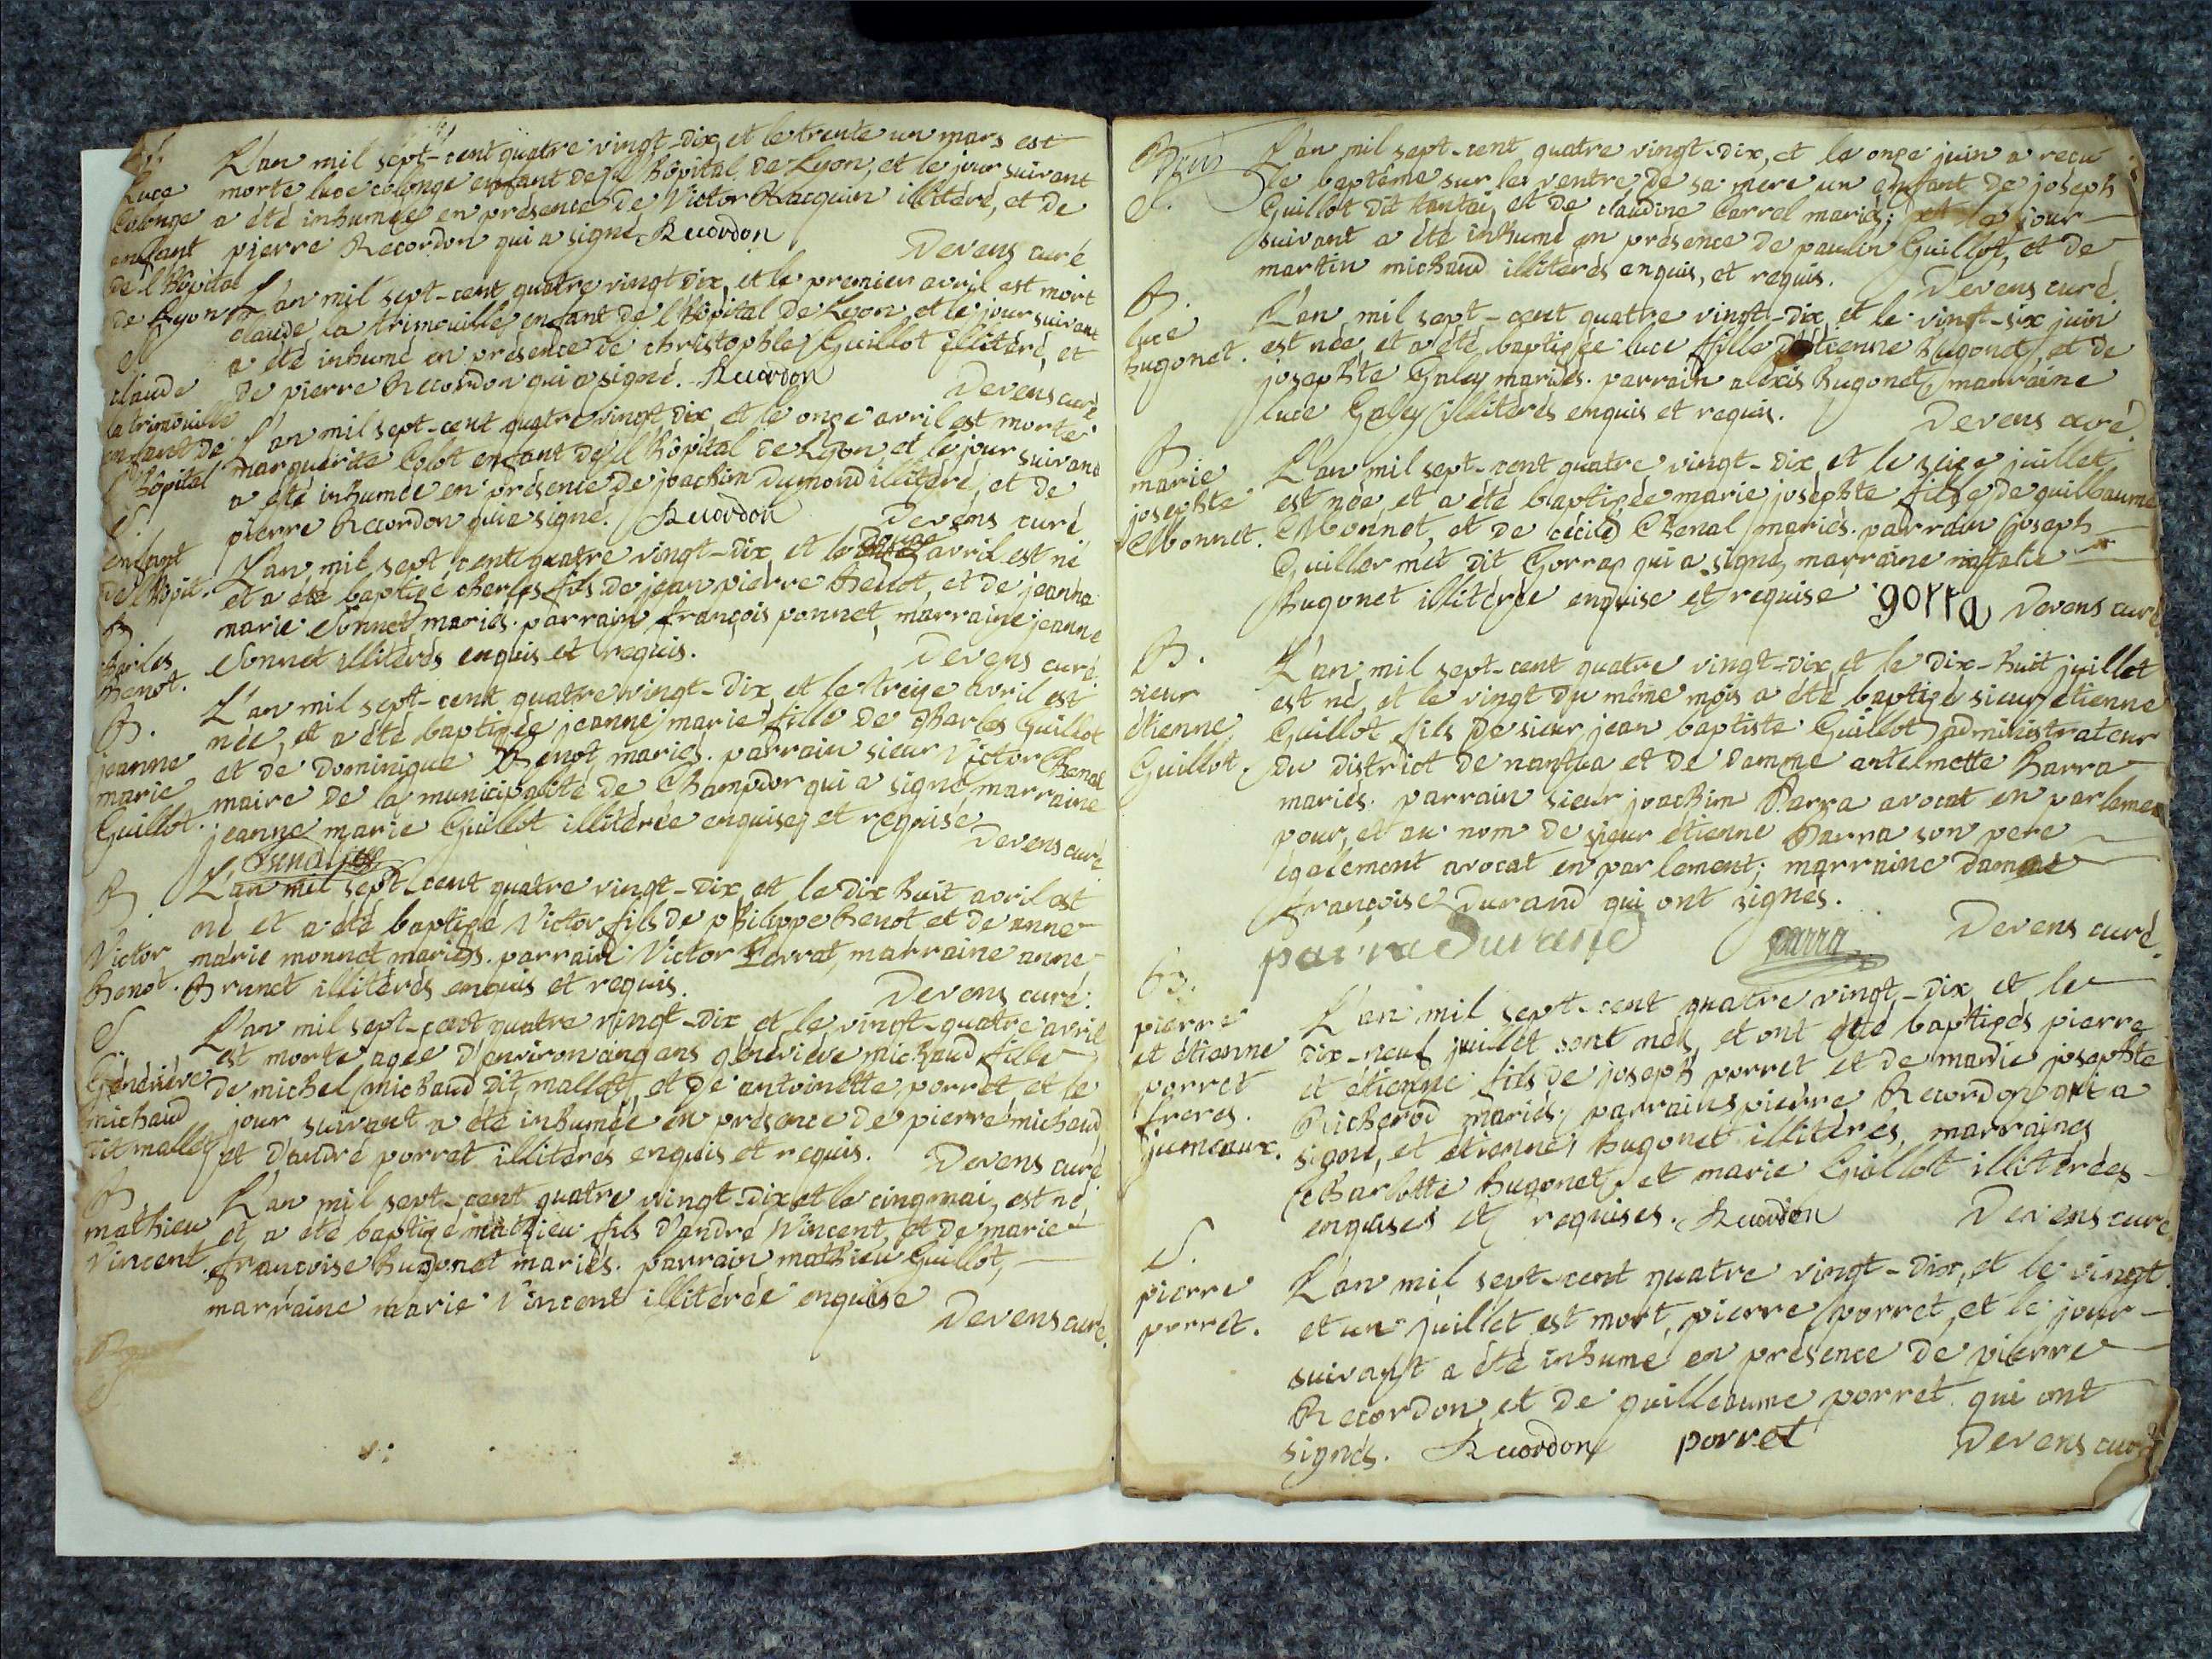 S.
Luce
Colonge
enffant
de l'hôpital
de Lyon
L'an mil sept-cent quatre vingt-dix, et le trente un mars est
morte luce colonge enffant de l'hôpital de Lyon, et le jour suivant
a été inhumée en présence de Victor Racquin illitéré, et de
pierre Recordon qui a signé. Recordon
Devens curé
S
claude
la trimouille
enfant de
l'hôpital
L'an mil sept-cent quatre vingt dix, et le premier avril est mort
claude la trimouille, enfant de l'hôpital de Lyon, et le jour suivant
a été inhumé en présence de christophle Guillot illitéré, et
de pierre Recordon qui a signé. Recordon
Devens curé
S
enfant
de l'hôpit.
L'an mil sept-cent quatre vingt dix, et le onze avril est morte
marguerite Colot enfant de l'hôpital de Lyon et le jour suivant
a été inhumée en présence de joachim dumond illitéré, et de
pierre Recordon qui a signé. Recordon
Devens curé
B
charles
Benot.
L'an mil sept cent quatre vingt-dix, et le douze avril est né
et a été baptizé charles fils de jean pierre Benot, et de jeanne
marie Sonnet mariés. parrain françois ponnet, marraine jeanne
Sonnet illitérés enquis et requis.
Devens curé.
B.
jeanne
marie
Guillot.
L'an mil sept-cent quatre vingt-dix, et le treize avril est
née, et a été baptizée jeanne marie fille de charles Guillot
et de Dominique Benot mariés. parrain sieur Victor Chenal
maire de la municipalité de Champdor qui a signé, marraine
jeanne marie Guillot illitérée enquise, et requise
Devens curé
B
Victor
Benot.
L'an mil sept-cent quatre vingt-dix, et le dix huit avril est
né et a été baptizé Victor fils de philippe Benot et de anne
marie monnet mariés. parrain Victor Perrat, marraine anne
Brunet illitérés enquis et requis.
Devens curé.
S
Généviéve
michaud
dit mallet
L'an mil sept-cent quatre vingt-dix, et le vingt-quatre avril
est morte agée d'environ cinq ans généviéve michaud fille
de michel michaud dit mallet, et de antoinette porret et le
jour suivant a été inhumée en présence de pierre michaud,
et d'andré porret illitérés enquis et requis.
Devens curé
B
mathieu
Vincent.
L'an mil sept-cent quatre vingt-dix et le cinq mai, est né
et a été baptizé mathieu fils d'andré Vincent, et de marie
françoise hugonet mariés. parrain mathieu Guillot,
marraine marie Vincent illitérée enquise
Devens curé.
S.
L'an mil sept-cent quatre vingt-dix, et le onze juin a reçu
le baptême sur le ventre de sa mere un enfant de joseph
Guillot dit tantai, et de claudine Carrel mariés; et le jour
suivant a été inhumé en présence de paulin Guillot, et de
martin michaud illitérés enquis, et requis.
Devens curé.
B.
luce
hugonet.
L'an mil sept-cent quatre vingt-dix et le vingt-six juin
est née, et a été baptizée luce fille d'étienne hugonet, et de
josephte Galey mariés. parrain aléxis hugonet, marraine
luce Galey illitérés enquis et requis.
Devens curé.
B
marie
josephte
Monnet.
L'an mil sept-cent quatre vingt-dix et le seize juillet
est née, et a été baptizée marie joséphte fille de guillaume
Monnet, et de cécile Chenal mariés. parrain joseph
Guillermet dit Gorraz qui a signé, marraine natalie
hugonet illitérée enquise et requise gorra Devens curé
B.
sieur
étienne
Guillot.
L'an mil sept-cent quatre vingt-dix et le dix-huit juillet
est né, et le vingt du même mois a été baptizé sieur étienne
Guillot fils de sieur jean baptiste Guillot administrateur
du district de nantua et de damme antelmette Barra
mariés. parrain sieur joachim Parra avocat en parlement
pour, et au nom de sieur étienne Parra son pere
également avocat en parlement; marraine damme
françoise Durand qui ont signés.
parra Durand parra Devens curé.
B.
pierre
et étienne
porret
freres
jumeaux.
L'an mil sept-cent quatre vingt-dix et le
dix-neuf juillet sont nés, et ont été baptizés pierre
et étienne fils de joseph porret et de marie josephte
Richerod mariés. parrains pierre Recordon qui a
signé, et étienne hugonet illitérés, marraines
Charlotte hugonet, et marie Guillot illitérées
enquises et requises. Recordon Devens curé.
S.
pierre
porret.
L'an mil sept-cent quatre vingt-dix, et le vingt
et un juillet est mort, pierre porret, et le jour
suivant a été inhumé en présence de pierre
Recordon, et de guilleaume porret qui ont
signés. Recordon porret Devens curé